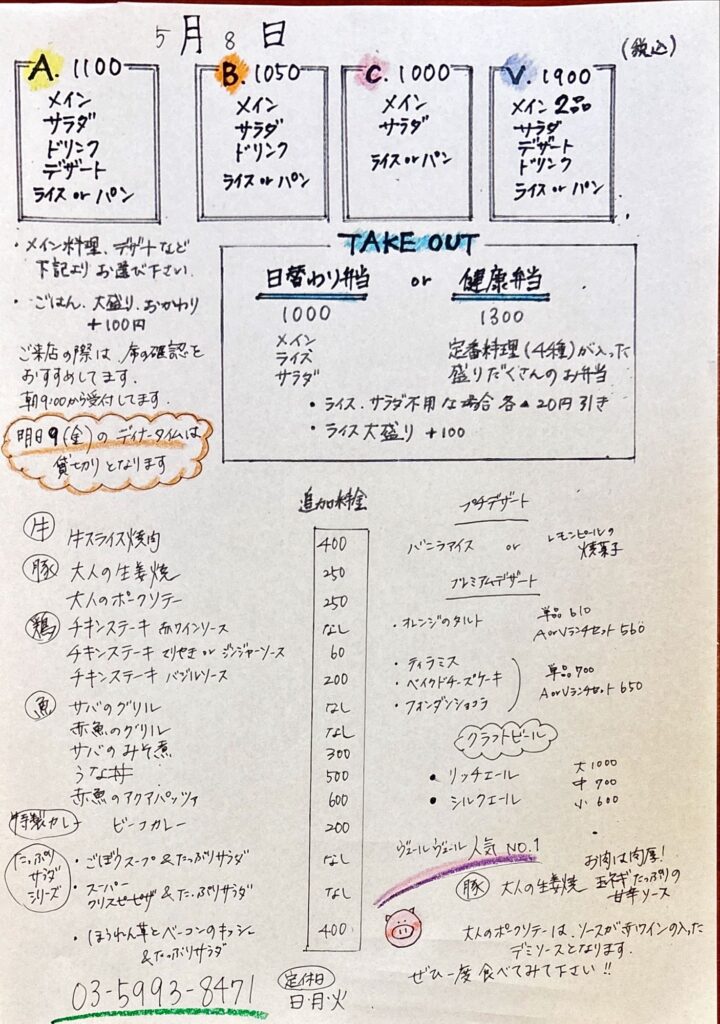 5月8日
(税込)
A. 1100
メイン
サラダ
ドリンク
デザート
ライス or パン
B. 1050
メイン
サラダ
ドリンク
ライス or パン
C. 1000
メイン
サラダ
ライス or パン
V. 1900
メイン 2品
サラダ
デザート
ドリンク
ライス or パン
・メイン料理、デザートなど
下記より お選び下さい
・ごはん、大盛り、おかわり
+100円
ご来店の際は、席の確認を
おすすめしてます。
朝9:00から受付してます。
明日9(金)の ディナータイムは
貸切りとなります
TAKE OUT
日替わり弁当 or 健康弁当
1000
メイン
ライス
サラダ
1300
定番料理(4種)が入った
盛りだくさんのお弁当
・ライス、サラダ不用な場合 各▲20円引き
・ライス大盛り +100
追加料金
牛 牛スライス焼肉 400
豚 大人の生姜焼 250
大人のポークソテー 250
鶏 チキンステーキ 赤ワインソース なし
チキンステーキ てりやき or ジンジャーソース 60
チキンステーキ バジルソース 200
魚 サバのグリル なし
赤魚のグリル なし
サバのみそ煮 300
うな丼 500
赤魚のアクアパッツァ 600
特製カレー ビーフカレー 200
たっぷりサラダシリーズ
・ごぼうスープ&たっぷりサラダ なし
・スーパー
クリスピーピザ &たっぷりサラダ なし
・ほうれん草とベーコンのキッシュ 400
&たっぷりサラダ
03-5993-8471
定休日
日・月・火
プチデザート
バニラアイス or レモンピールの
焼菓子
プレミアムデザート
・オレンジのタルト 単品 610
A or Vランチセット 560
・ティラミス
・ベイクドチーズケーキ
・フォンダンショコラ
単品 700
A or Vランチセット 650
クラフトビール
● リッチエール
● シルクエール
大 1000
中 900
小 600
ヴェールヴェール 人気 NO.1
豚 大人の生姜焼
お肉は肉厚!
玉ネギたっぷりの
甘辛ソース
大人のポークソテーは、ソースが赤ワインの入った
デミソースとなります。
ぜひ一度 食べてみて下さい!!